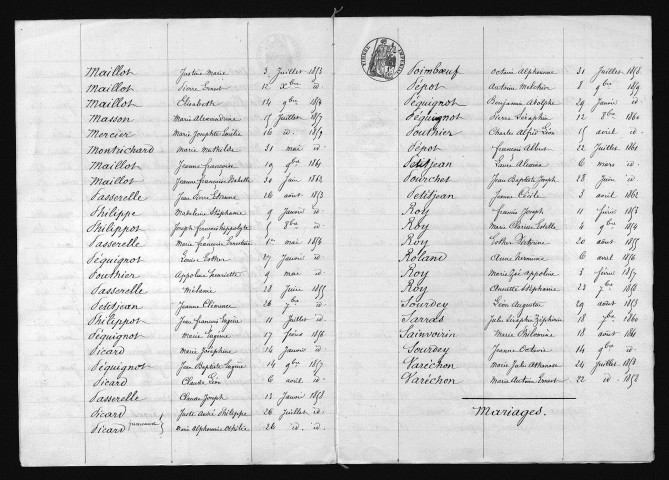 Maillot Justine Marie 3 Juillet 1853
Maillot Pierre Ernest 12 Xbre id
Maillot Elisabeth 14 9bre 1854
Masson Marie Alexandrine 15 Juillet 1857
Mercier Marie Josephte Emilie 16 id 1859
Montrichard Marie Mathilde 31 mai id
Maillot Jeanne françoise 19 9bre 1861
Maillot Jeanne françoise 30 Juin 1862
Passerelle Jean Pierre Etienne 26 août 1853
Philippe Madeleine Stéphanie 9 Janvier id
Philippot Joseph françois hippolyte 5 8bre id
Passerelle Marie françoise Ernestine 1er mai 1854
Péquignot Louise Esther 27 Janvier id
Pouthier Appoline henriette 1 mai id
Passerelle Mélanie 28 Juin 1855
Petitjean Jeanne Clémence 26 7bre id
Philippot Jean françois Eugène 11 Juillet id
Péquignot Marie Eugénie 17 février 1856
Picard Marie Joséphine 14 Janvier id
Péquignot Jean Baptiste Eugène 14 9bre 1857
Picard Claude Léon 6 avril id
Passerelle Joseph 13 Janvier 1858
Picard Juste André Philippe 26 Juillet id
Picard jumeaux Marie Alphonsine 26 id. id.
TIMBRE IMPERIAL
Poimbœuf Octavie Alphonsine 31 Juillet 1858
Pépot Antoine Melchior 8 9bre 1859
Péquignot Benjamin Adolphe 29 Janvier id
Péquignot Pierre Séraphin 12 8bre 1860
Pouthier Charles Alfred Léon 15 avril id
Pépot françois Albert 22 Juillet 1861
Petitjean 6 mars id
Pourchet Jean Baptiste Joseph 28 Juin id
Petitjean Jeanne Cécile 3 avril 1862
Roy francis Joseph 11 février 1853
Roy Marie Clarisse 4 9bre 1854
Roy Esther Victorine 20 août 1855
Roland Anne herminie 6 avril 1856
Roy Marie Zoé appoline 3 février 1857
Roy Annette Stéphanie 23 7bre 1858
Sourdey Léon Auguste 29 août 1853
Sarras Jules Séraphin Zéphirin 18 7bre 1860
Sainvoirin Marie Philomène 18 août 1861
Sourdey Jeanne Octavie 14 9bre id
Varéchon Marie Jules Athanase 24 Juillet 1853
Varéchon Marie Antoine Ernest 22 id 1858
Mariages.